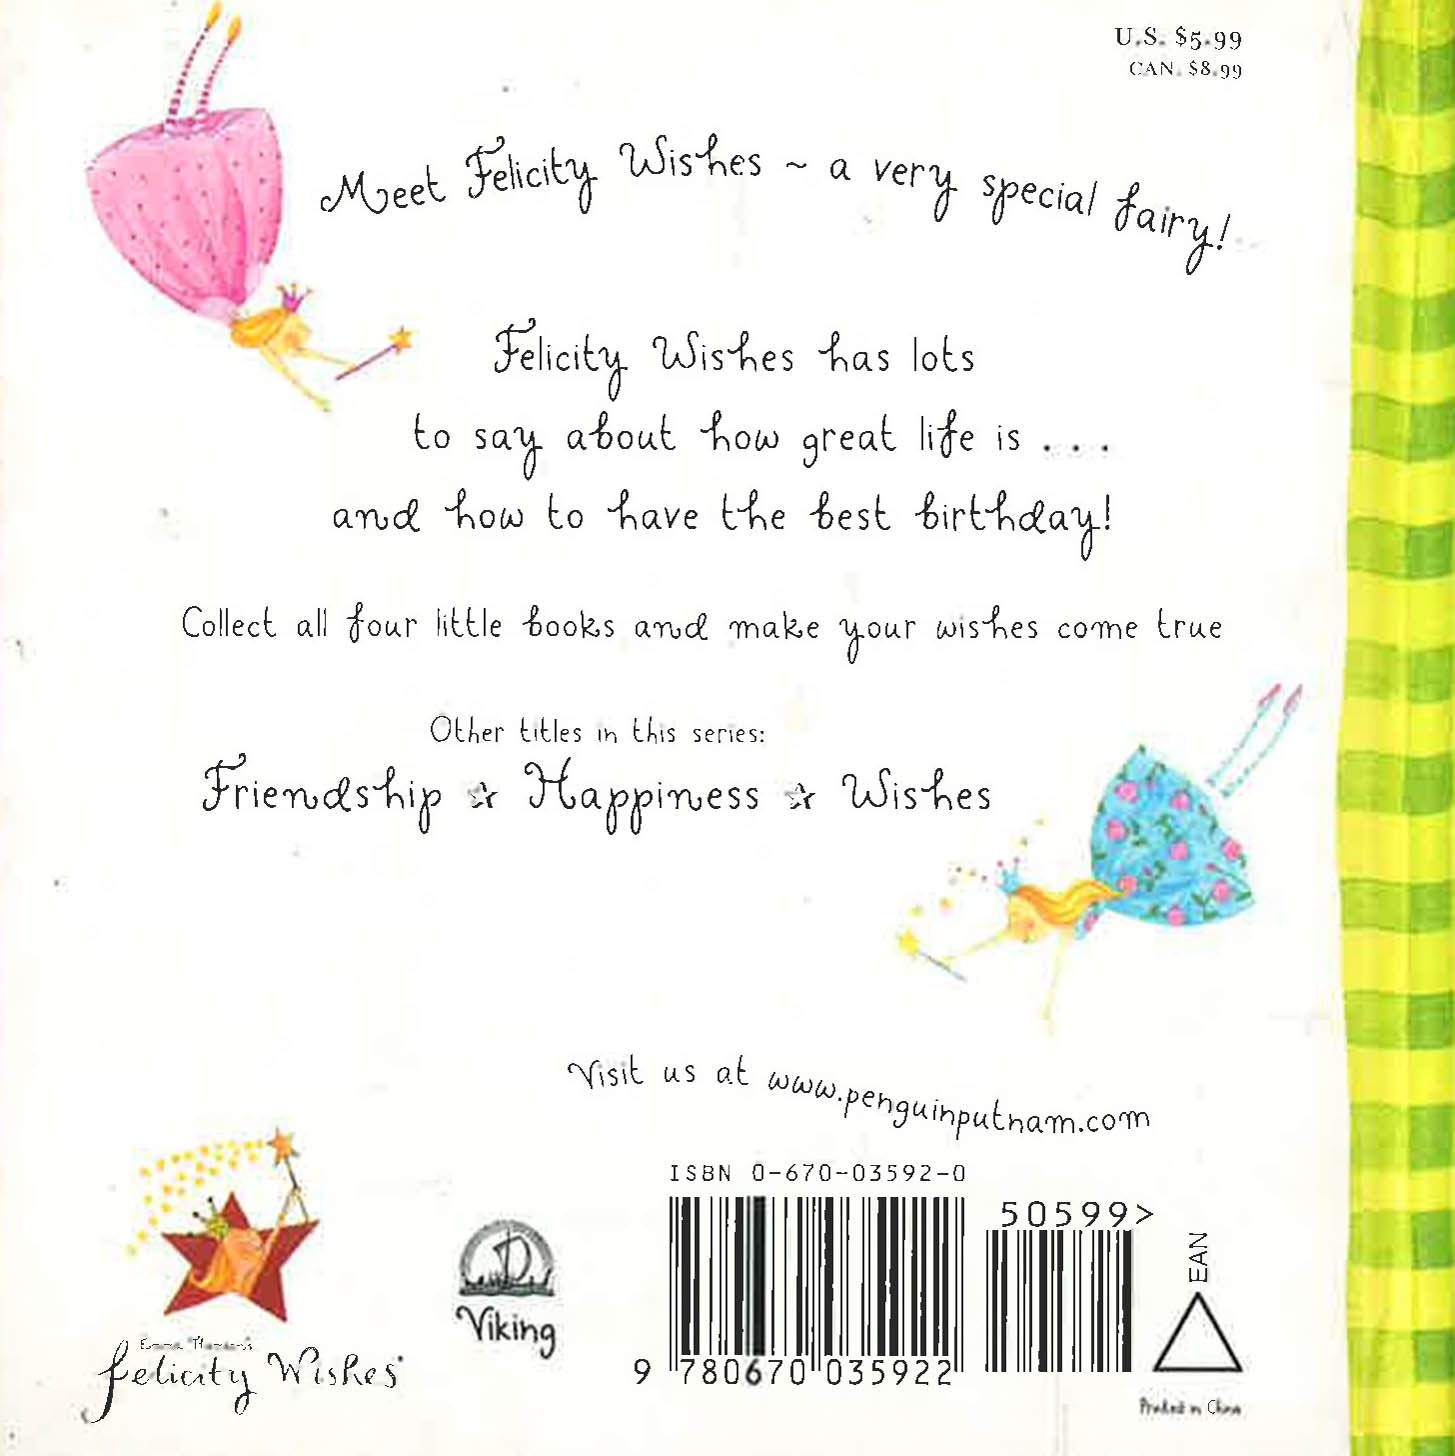 U.S. $5.99
CAN. $8.99
Meet Felicity Wishes ~ a very special fairy!
Felicity Wishes has lots
to say about how great life is . . .
and how to have the best birthday!
Collect all four little books and make your wishes come true
Other titles in this series:
Friendship ☆ Happiness ☆ Wishes
Visit us at www.penguinputnam.com
ISBN 0-670-03592-0
50599>
EAN
Viking
Felicity Wishes
9 780670 035922
Printed in China